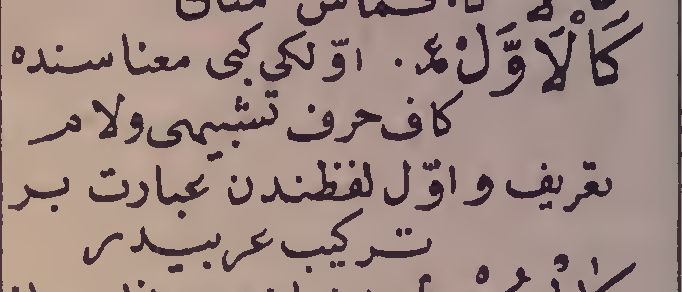 كَالْاَوَّلْ ع. اوّلكی كبی معناسنده
كاف حرف تشبیهی ولام
تعریف و اوّل لفظندن عبارت بر
تركیب عربیدر